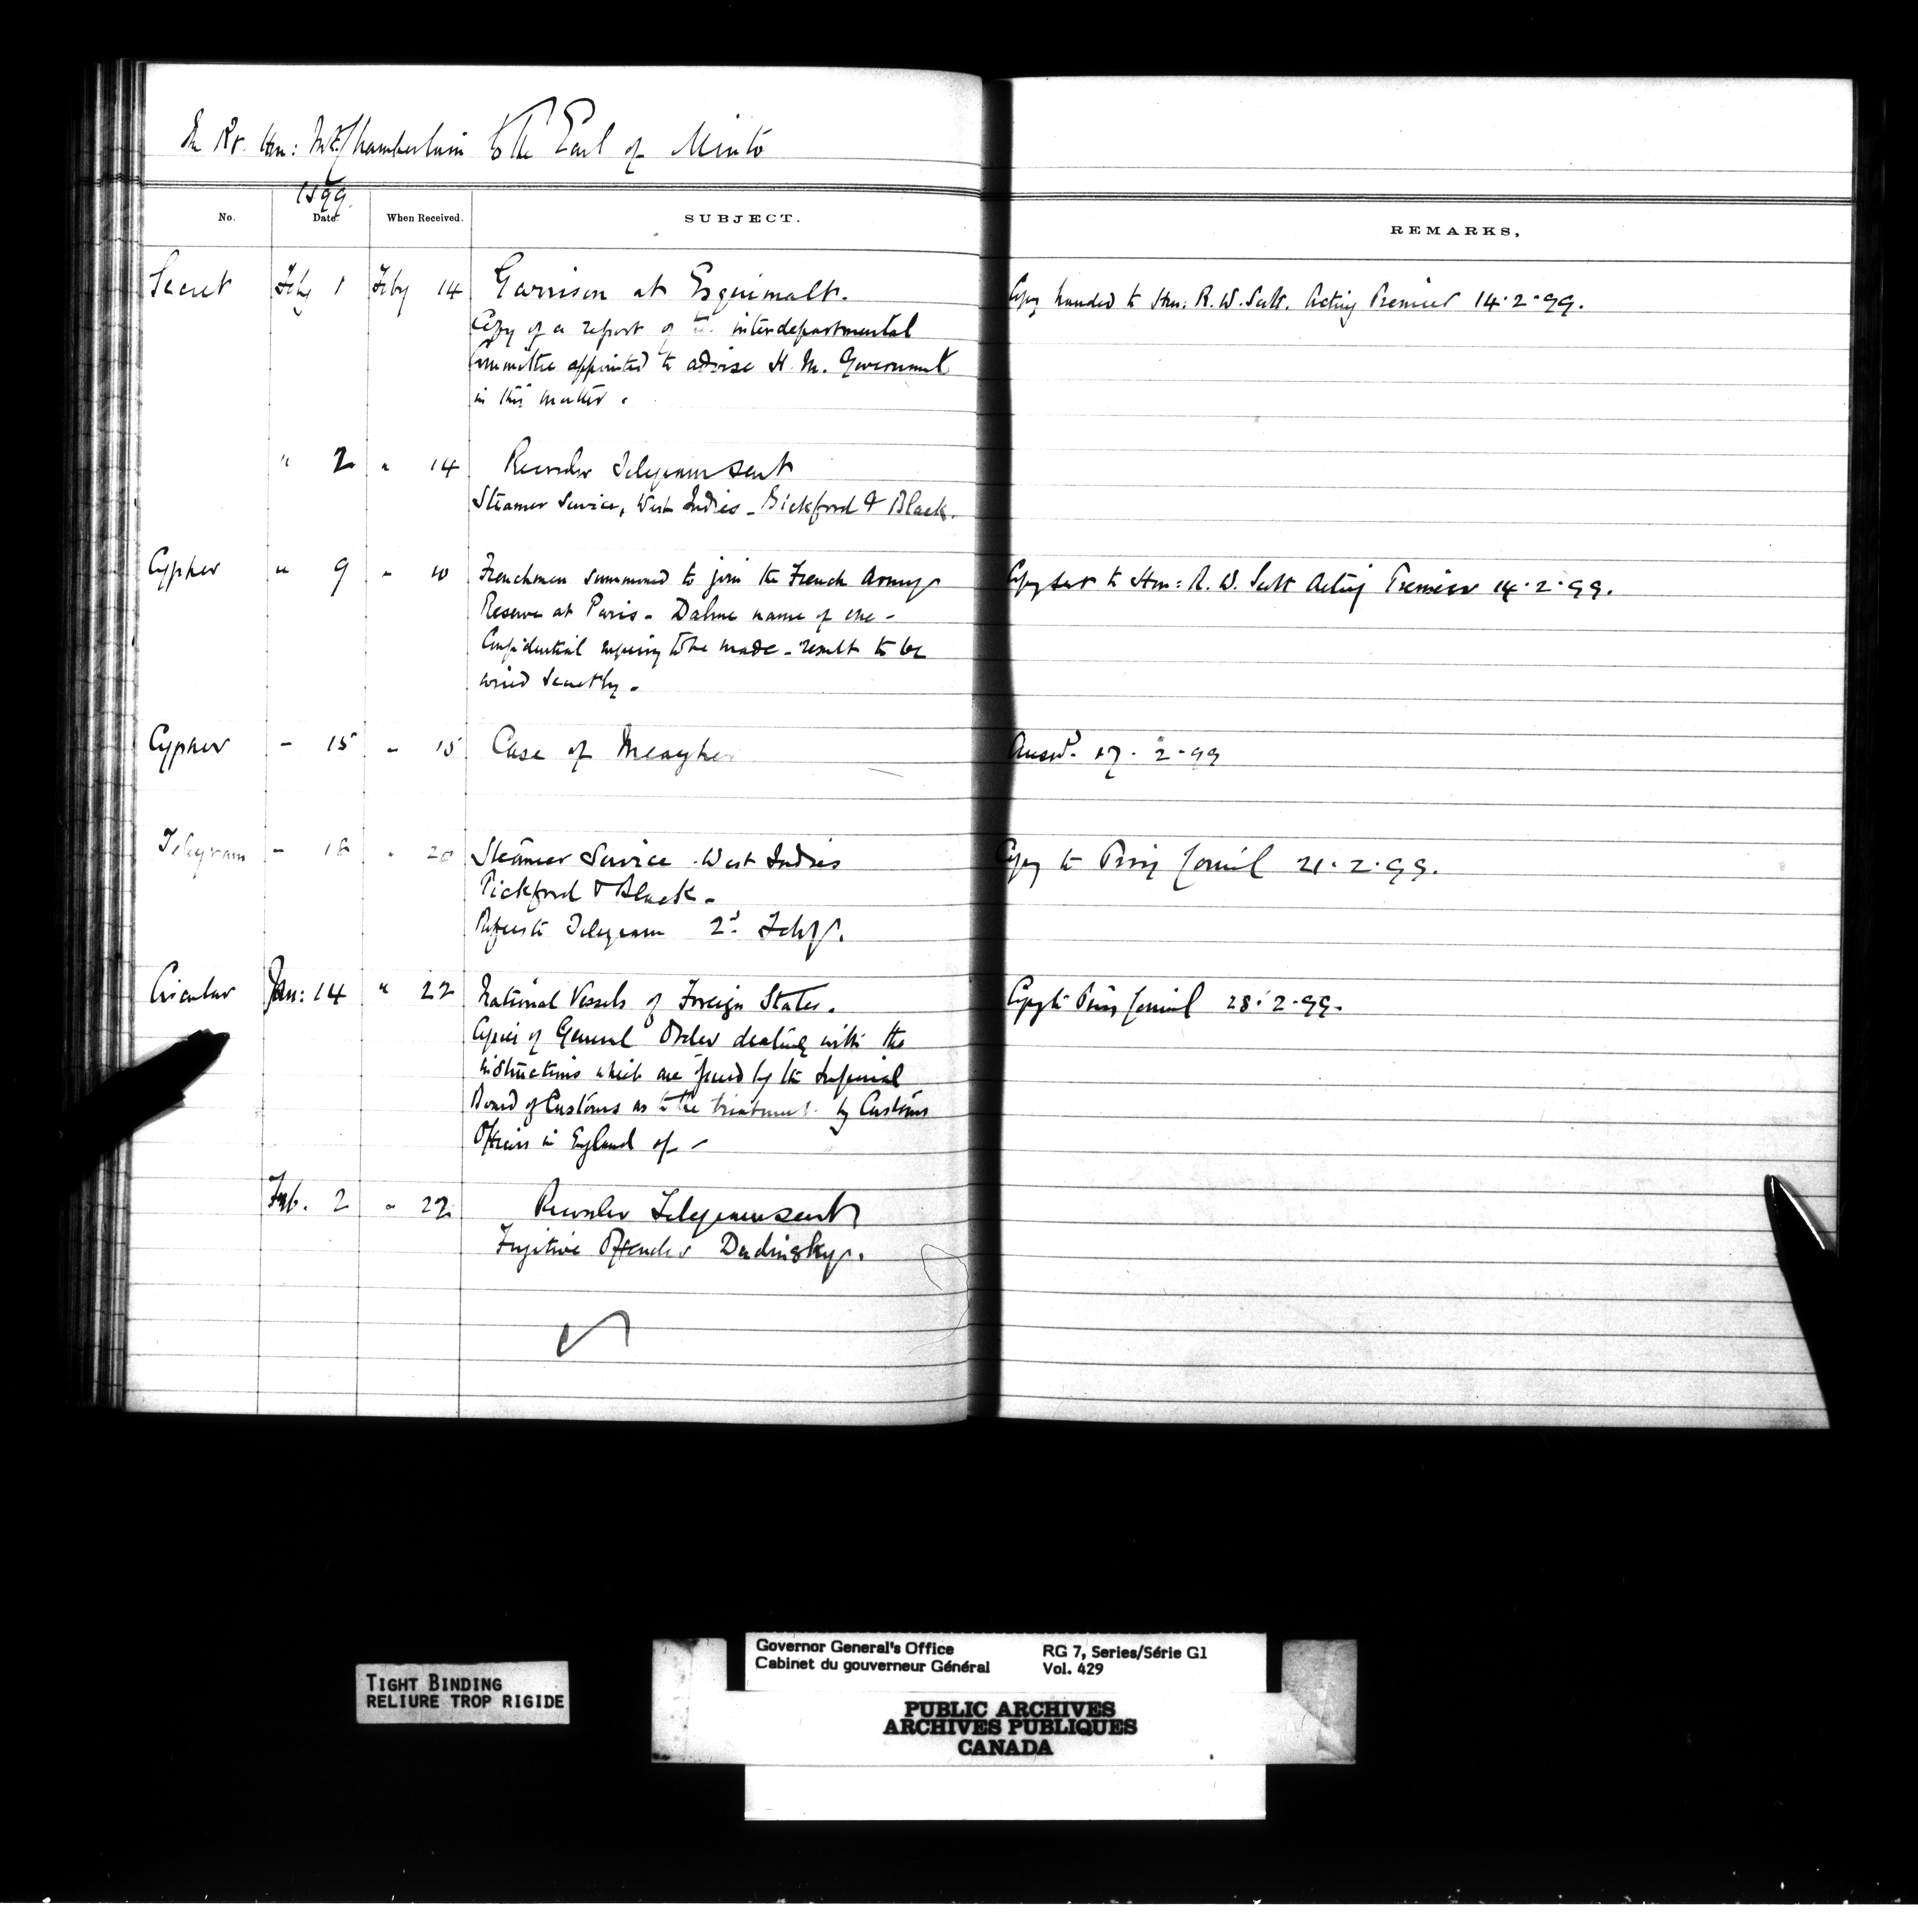 The Rt. Hon: Mr Chamberlain to the Earl of Minto
1899.
No. Date. When Received. SUBJECT. REMARKS,
Secret Feby 1 Feby 14 Garrison at Esquimalt. Copy handed to Hon: R. W. Scott. Acting Premier 14.2.99.
Copy of a report of the interdepartmental
Committee appointed to advise H. M. Government
in this matter.
" 2 " 14 Recorder Telegram sent
Steamer Service, West Indies - Pickford & Black.
Cypher " 9 " 10 Frenchmen summoned to join the French Army Copy sent to Hon: R. W. Scott Acting Premier 14.2.99.
Reserve at Paris - name of one -
Confidential inquiry to be made - result to be
wired secretly -
Cypher - 15 - 15 Case of Meagher Answd. 17. 2. 99
Telegram - 18 " 20 Steamer Service West Indies Copy to Privy Council 21.2.99.
Pickford & Black -
Refers to Telegram 2d Feby.
Circular Jan: 14 " 22 National Vessels of Foreign States. Copy to Privy Council 28.2.99.
Copies of General Order dealing with the
instructions which are issued by the Imperial
Board of Customs as to the treatment by Customs
Officers in England of -
Feb. 2 " 22 Recorder Telegram sent
Fugitive Offender Dudinsky.
TIGHT BINDING
RELIURE TROP RIGIDE
Governor General's Office RG 7, Series/Série G1
Cabinet du gouverneur Général Vol. 429
PUBLIC ARCHIVES
ARCHIVES PUBLIQUES
CANADA